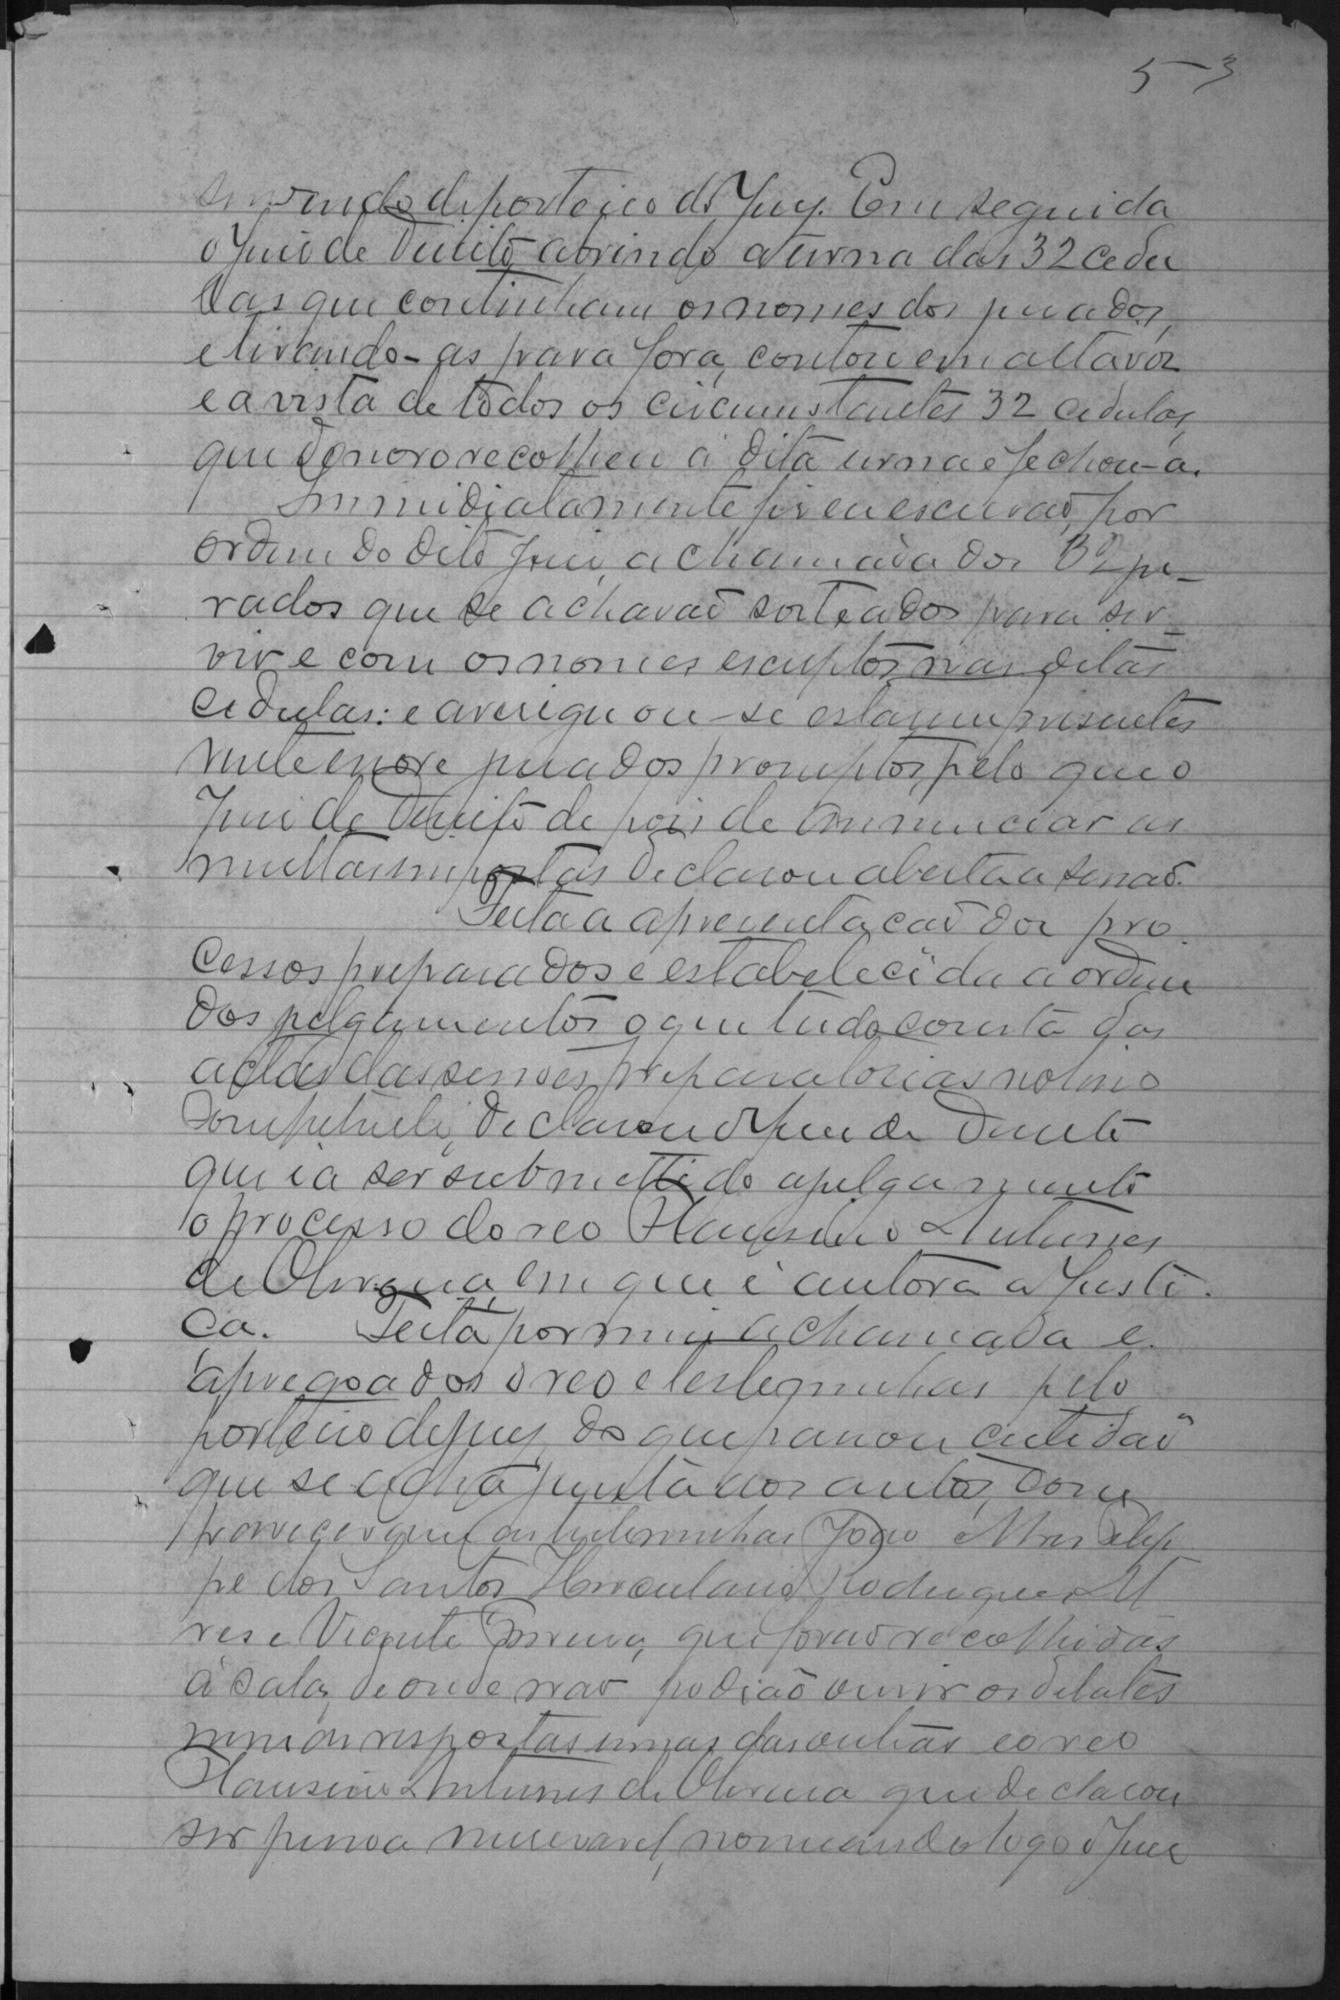 53
servindo de porteiro do Jury. Em seguida
o Juis de Direito abrindo a urna das 32 cedu
las que continham os nomes dos jurados,
e tirando-as para fora, contou em alta vóz
e a vista de todos os circumstantes 32 cedulas,
que de novo recolheu á dita urna e fechou-a.
Immidiatamente fiz eu escrivaõ, por
ordem do dito Juis, a chamada dos 32 ju-
rados que se achavaõ sorteados para ser-
vir e com os nomes escriptos nas ditas
cedulas: e averiguou-se estarem presentes
vinte e nove jurados promptos, pelo que o
Juis de Direito depois de annunciar as
multas impostas declarou aberta a sessaõ.
Feita a apresentaçaõ dos pro
cessos preparados e estabelecida a ordem
dos julgamentos o que tudo consta das
actas das sessoes preparatorias no livro
competente, declarou o Juis de Direito
que ia ser submettido a julgamento
o processo do reo Antunes
de Oliveira, em que é autora a Justi
ça. Feita por mim a chamada e
apregoados o reo e testemunhas pelo
porteiro do jury, do que passou certidaõ
que se acha junta aos autos, com
pareceram as testemunhas João
pe dos Santos, Herculano Rodrigues Al
ves e Vicente que foraõ recolhidas
á sala, de onde naõ podiaõ ouvir os debates
nem as respostas umas das outras e o reo
Antunes de Oliveira que declarou
ser pessoa miseravel, nomeando logo o Juis